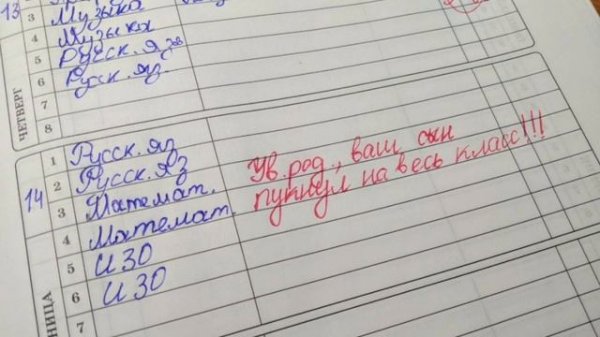 13
3 Музыка
4 Музыка
5 Русск. яз
6 Русск. яз.
7
8
ЧЕТВЕРГ
14
1 Русск. яз
2 Русск. яз
3 Математ.
4 Математ.
5 ИЗО
6 ИЗО
7
Ув. род., ваш сын
пукнул на весь класс!!!
НИЦА